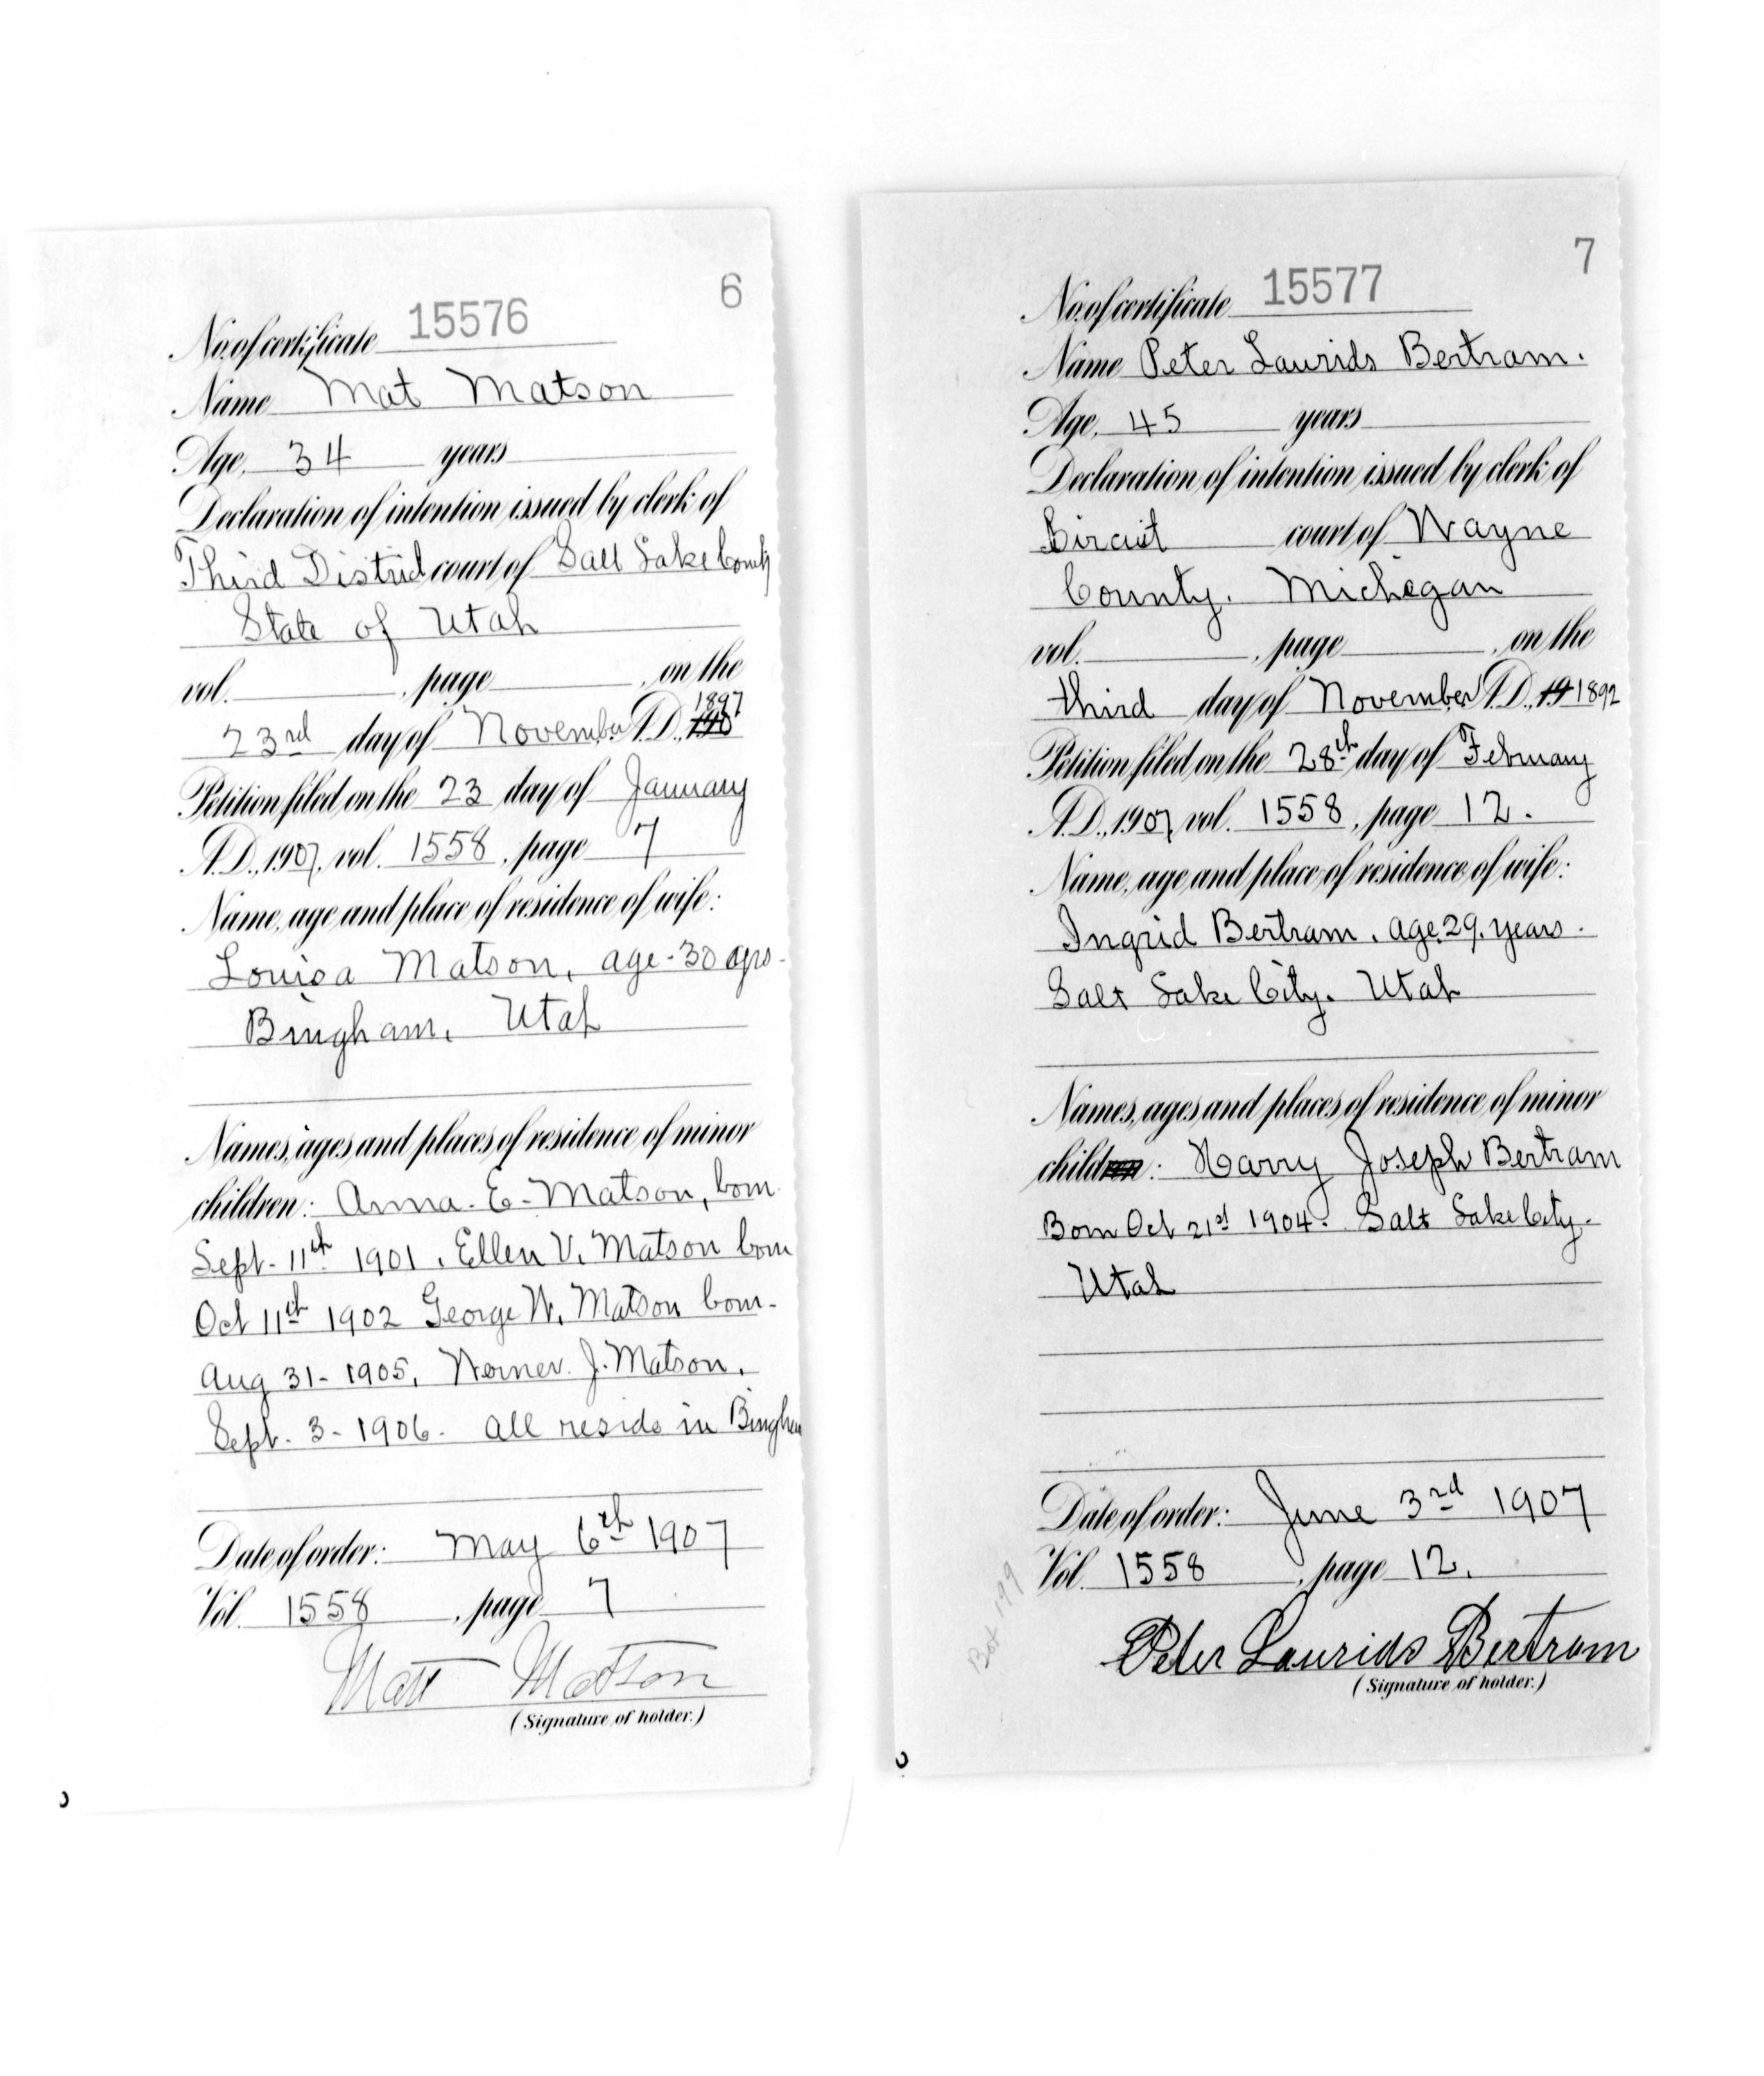 6
No. of certificate 15576
Name Mat Matson
Age, 34 years
Declaration of intention issued by clerk of
Third District court of Salt Lake County
State of Utah
vol. , page , on the
23rd day of November A.D., 190 1897
Petition filed on the 23 day of January
A.D., 1907, vol. 1558, page 7
Name, age and place of residence of wife:
Louisa Matson, age-30 yrs-
Bingham, Utah
Names, ages and places of residence of minor
children: Anna-E-Matson, born
Sept-11th 1901, Ellen V. Matson born
Oct 11th 1902 George W. Matson born-
Aug 31-1905, J. Matson,
Sept. 3-1906- All reside in Bingham
Date of order: May 6th 1907
Vol. 1558, page 7
Matt Matson
(Signature of holder.)
7
No. of certificate 15577
Name Peter Laurids Bertram.
Age, 45 years
Declaration of intention issued by clerk of
Circuit court of Wayne
County. Michigan
vol. , page , on the
third day of November A.D., 19 1892
Petition filed on the 28th day of February
A.D., 1907, vol. 1558, page 12.
Name, age and place of residence of wife:
Ingrid Bertram, age, 29, years.
Salt Lake City. Utah
Names, ages and places of residence of minor
children: Harry Joseph Bertram
Born Oct 21st 1904. Salt Lake City.
Utah
Date of order: June 3rd 1907
Vol. 1558, page 12.
Peter Laurids Bertram
(Signature of holder.)